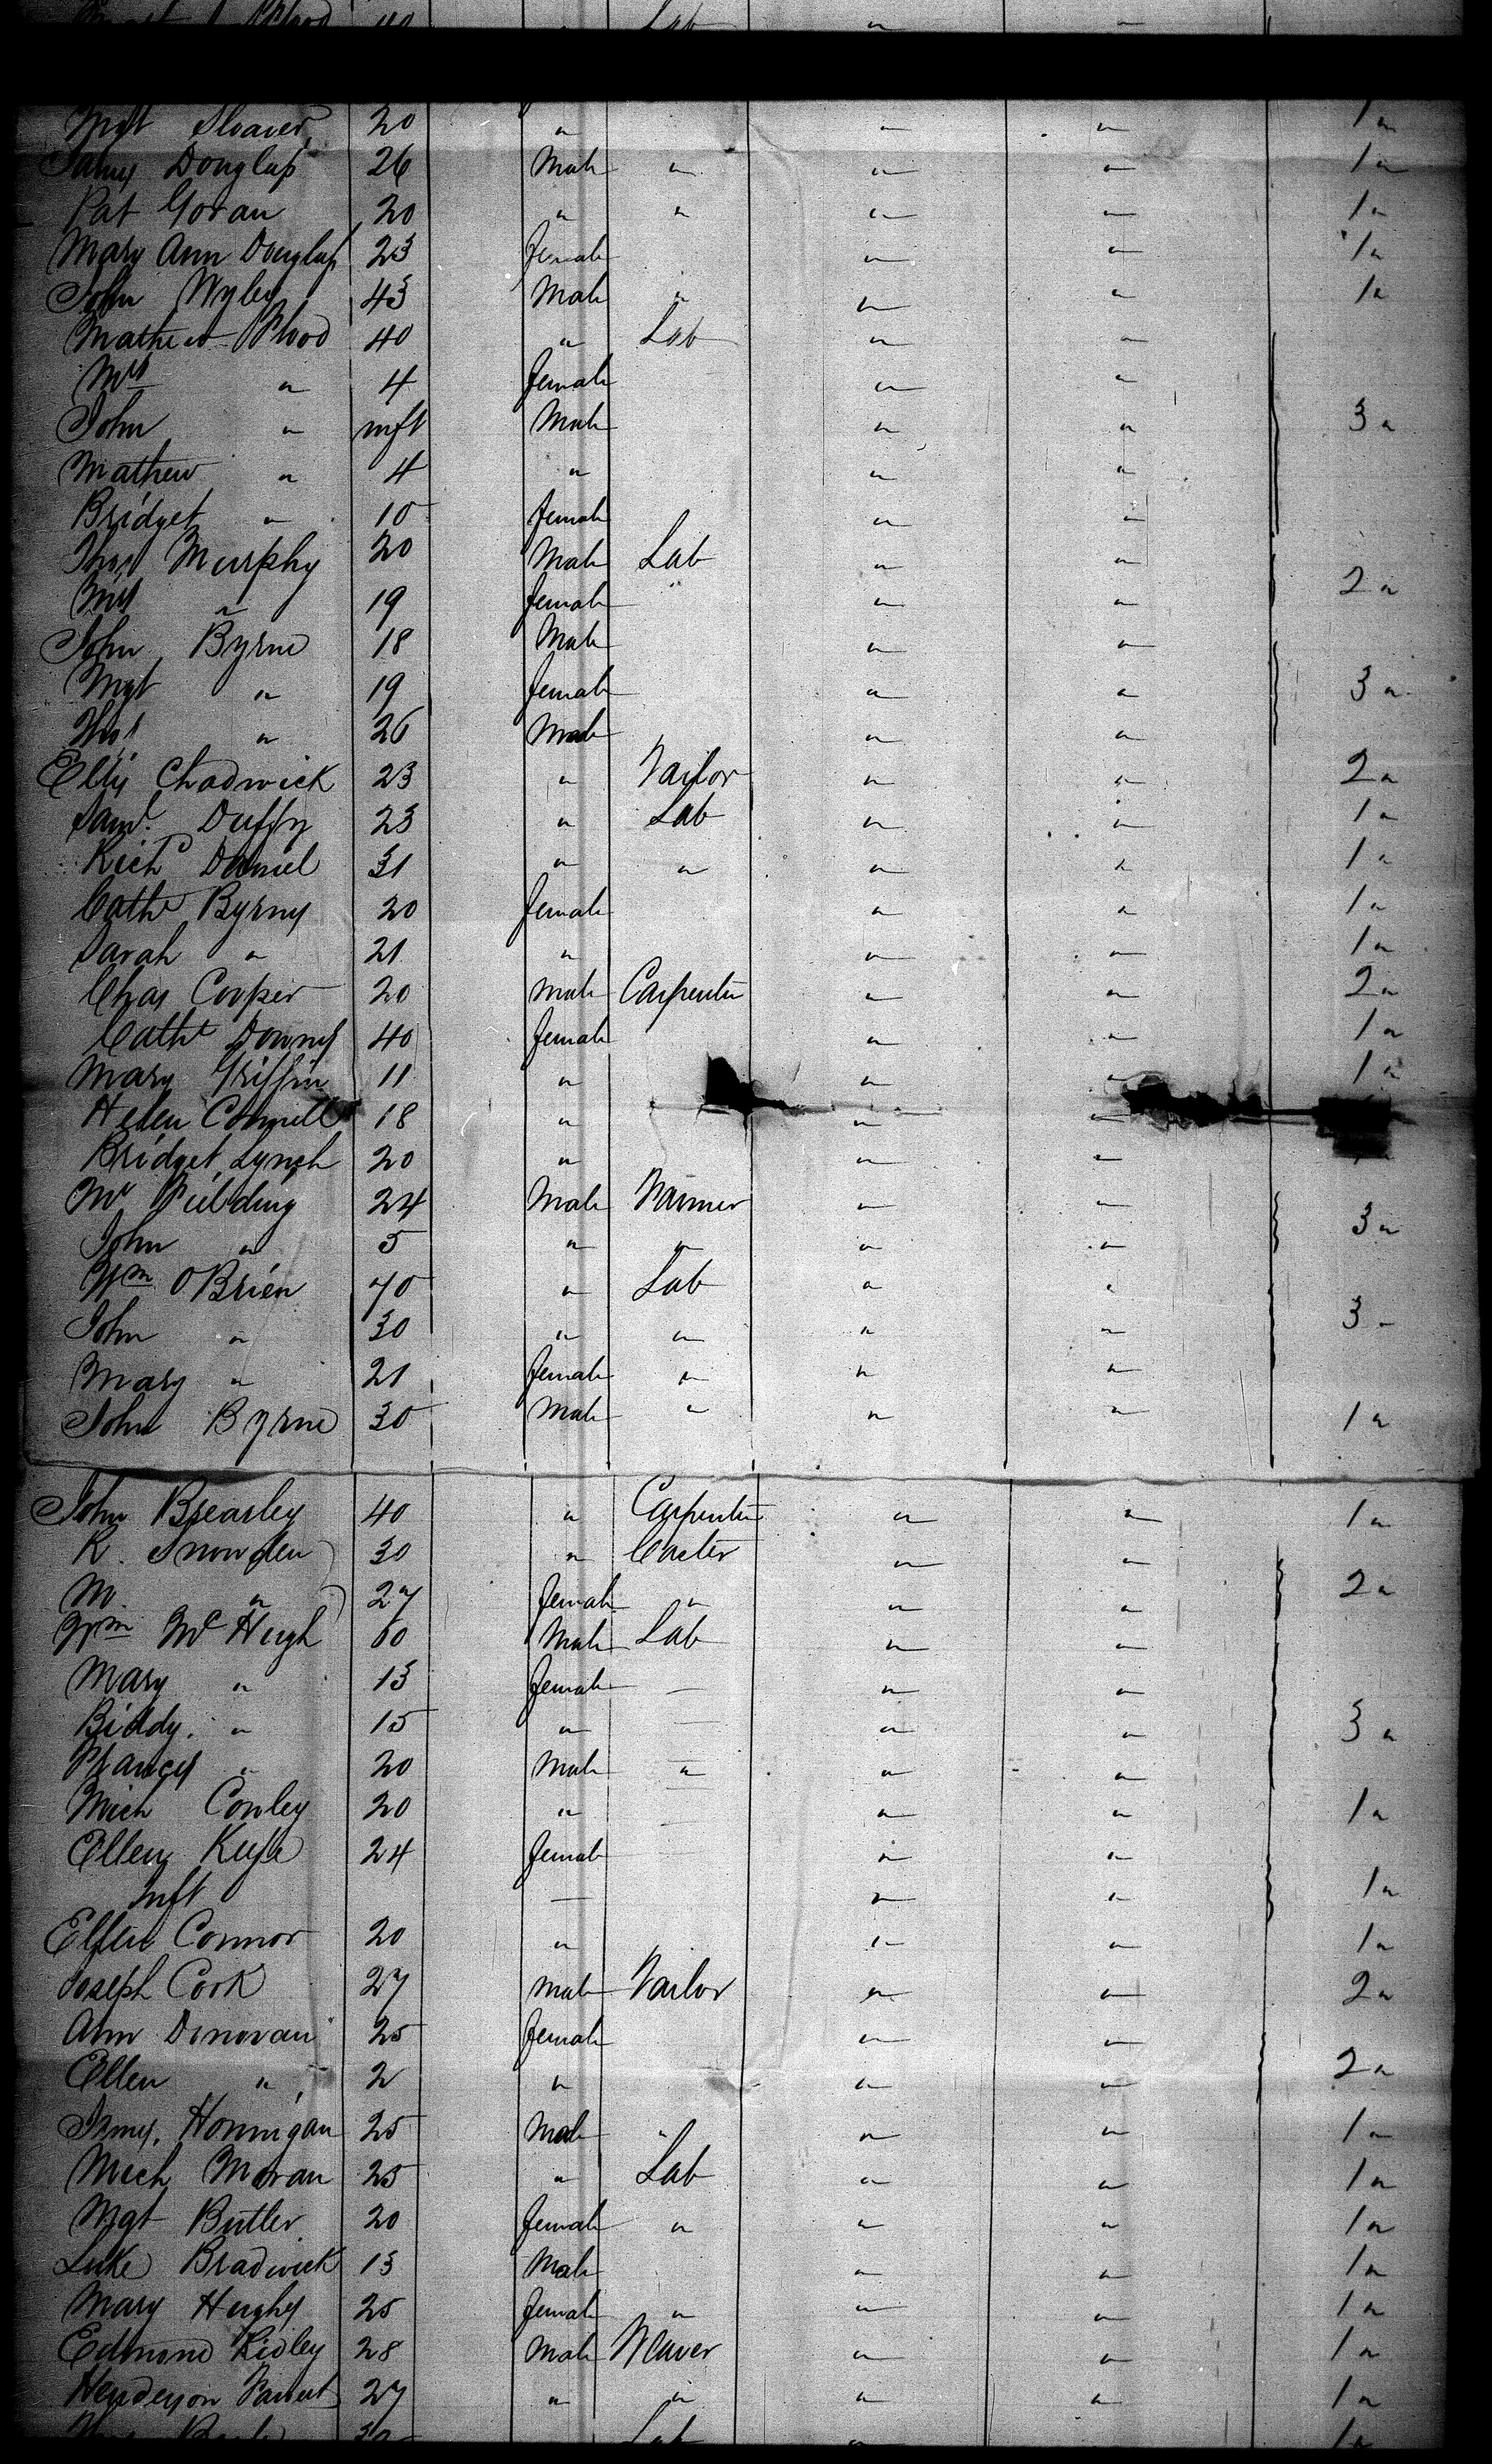 Lab " "
Mgt Sloaver 20 " " " 1 "
James Douglass 26 Male " " " 1 "
Pat Goran 20 " " " " 1 "
Mary Ann Douglass 23 female " " 1 "
John Wyley 43 Male " " " 1 "
Mathew Flood 40 " Lab " "
Mrs " 4 female " "
John " inft Male " " 3 "
Mathew " 4 " " "
Bridget " 10 female " "
Thos Murphy 20 Male Lab " "
Mrs " 19 female " " 2 "
John Byrne 18 Male " "
Mgt " 19 female " " 3 "
Thos " 26 Male " "
Ellis Chadwick 23 " Tailor " " 2 "
Saml. Duffy 23 " Lab " " 1 "
Richd Daniel 31 " " " " 1 "
Cathe Byrns 20 female " " 1 "
Sarah " 21 " " " 1 "
Chas Cooper 20 Male Carpenter " " 2 "
Cathe Downs 40 female " " 1 "
Mary Griffin 11 " " " 1 "
Helen Connell 18 " " "
Bridget Lynch 20 " " "
Mr Fielding 24 Male Farmer " " 3 "
John " 5 " " " "
Wm O'Brien 70 " Lab " "
John " 30 " " " " 3 "
Mary " 21 female " " "
John Byrne 30 Male " " " 1 "
John Brearley 40 " Carpenter " " 1 "
R. Snowden 30 " Carter " "
M. " 27 female " " " 2 "
Wm McHugh 60 Male Lab " "
Mary " 13 female — " "
Biddy " 15 " — " " 3 "
Francis " 20 Male " " "
Mich Conley 20 " " " 1 "
Ellen Keefe 24 female " "
Inft — " " 1 "
Ellen Connor 20 " " " 1 "
Joseph Cook 27 Male Tailor " " 2 "
Ann Donovan 25 female " "
Ellen " 2 " " " 2 "
James Honnigan 25 Male " " " 1 "
Mich Moran 25 " Lab " " 1 "
Mgt Butler 20 female " " " 1 "
Luke Bradwick 13 Male " " 1 "
Mary Hughs 25 female " " " 1 "
Edmond Ridley 28 Male Weaver " " 1 "
Henderson 27 " " " " 1 "